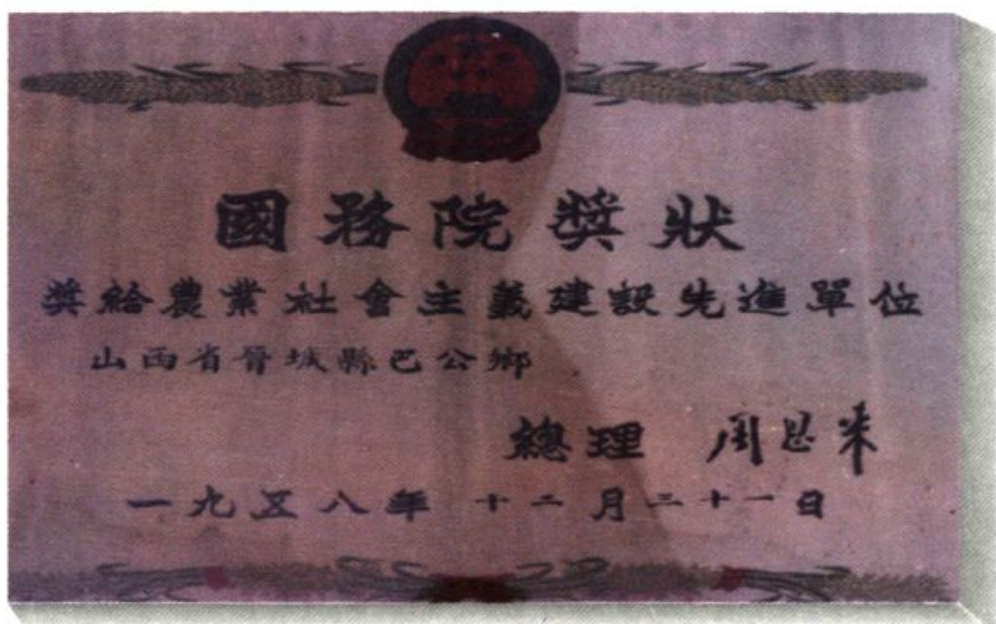 國務院獎狀
獎給農業社會主義建設先進單位
山西省晉城縣巴公鄉
總理 周恩来
一九五八年 十二月三十一日